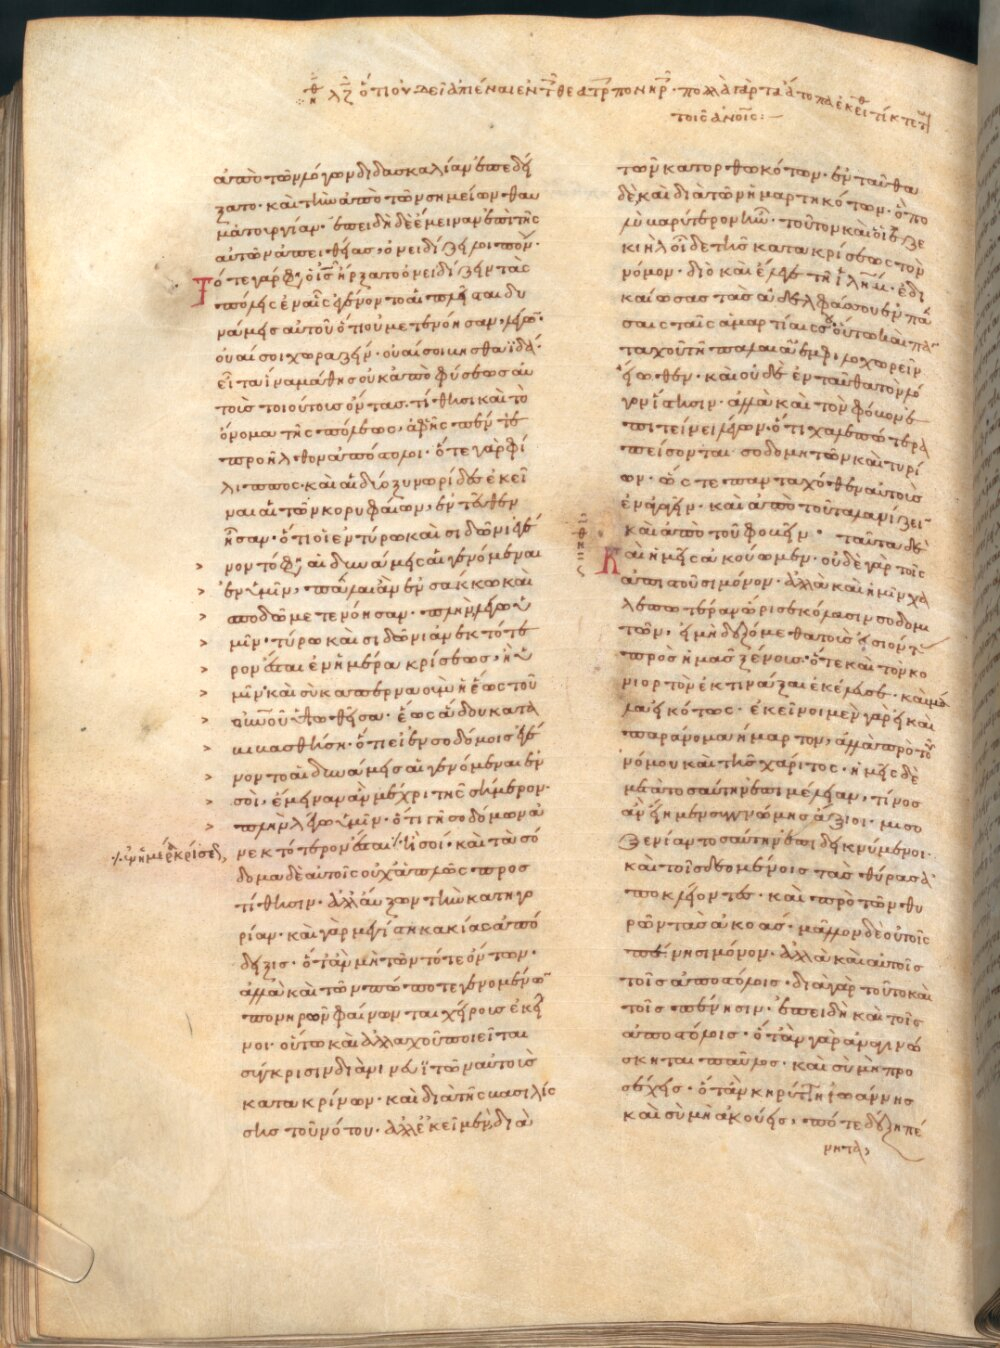 λζ ὅτι οὐ δεῖ ἀπιέναι ἐν τ θεάτρ πονηρ · πολλὰ γὰρ τὰ ἄτοπα ἐκεῖθ τίκτετ
τοῖς ἀνοις :—
ἀπὸ τῶν λόγων διδασκαλίαν ἐπεδεί
ξατο · καὶ τὴν ἀπὸ τῶν σημείων θαυ
ματουργίαν · ἐπειδὴ δὲ ἔμειναν ἐπὶ τῆς
αὐτῶν ἀπειθείας, ὀνειδίζει λοιπὸν ·
Τότε γάρ φησιν ὁ ις ἤρξατο ὀνειδίζειν τὰς
πόλεις ἐν αἷς ἐγένοντο αἱ πλεῖσται δυ
νάμεις αὐτοῦ ὅτι οὐ μετενόησαν, λέγων ·
οὐαί σοι χωραζείν · οὐαί σοι βηθσαϊδά ·
εἶτα ἵνα μάθῃς οὐκ ἀπὸ φύσεως αὐ
τοὺς τοιούτους ὄντας · τίθησι καὶ τὸ
ὄνομα τῆς πόλεως, ἀφ' ἧς πέντε
προῆλθον ἀπόστολοι · ὅ τε γὰρ φί
λιππος · καὶ αἱ δύο ξυνωρίδες ἐκεῖ
ναι αἱ τῶν κορυφαίων, ἐντεῦθεν
ἦσαν · ὅτι εἰ ἐν τύρω καὶ σιδῶνι ἐγέ
νοντό φησιν αἱ δυνάμεις αἱ γενόμεναι
ἐν ὑμῖν, πάλαι ἂν ἐν σάκκω καὶ
σποδῶ μετενόησαν · πλὴν λέγω ὑ
μῖν · τύρω καὶ σιδῶνι ἀνεκτότε
ρον ἔσται ἐν ἡμέρα κρίσεως, ἢ ὑ
μῖν · καὶ σὺ καπερναοὺμ ἡ ἕως τοῦ
οὐνοῦ ὑψωθεῖσα · ἕως ἅδου κατα
βιβασθήση · ὅτι εἰ ἐν σοδόμοις ἐγέ
νοντο αἱ δυνάμεις αἱ γενόμεναι ἐν
σοὶ, ἔμειναν ἂν μέχρι τῆς σήμερον ·
πλὴν λέγω ὑμῖν · ὅτι γῆ σοδόμων ἀ
νεκτότερον ἔσται ἢ σοί · καὶ τὰ σό
ἐν ἡμέρα κρίσεως,
δομα δὲ αὐτοῖς οὐχ ἁπλῶς προσ
τίθησιν · ἀλλ' αὔξων τὴν κατηγο
ρίαν · καὶ γὰρ μεγίστη κακίας ἀπό
δειξις · ὅταν μὴ τῶν τότε ὄντων ·
ἀλλὰ καὶ τῶν πώποτε γενομένων
πονηρῶν φαίνωνται χείρους ἐκεῖ
νοι · οὕτω καὶ ἀλλαχοῦ ποιεῖται
σύγκρισιν διὰ νινευϊτῶν αὐτοὺς
κατακρίνων · καὶ διὰ τῆς βασιλίσ
σης τοῦ νότου · ἀλλ' ἐκεῖ μὲν, διὰ
τῶν κατορθωκότων · ἐνταῦθα
δὲ, καὶ διὰ τῶν ἡμαρτηκότων · ὃ πο
λὺ βαρύτερον ἦν · τοῦτον καὶ ὁ ἰεζε
κιὴλ οἶδε τῆς κατακρίσεως τὸν
νόμον · διὸ καὶ ἔλεγε τῆ ιλημ · ἐδι
καίωσας τὰς ἀδελφάς σου ἐν πά
σαις ταῖς ἁμαρτίαις σου · οὕτω καὶ παν
ταχοῦ τῆ παλαιᾶ ἐμφιλοχωρεῖν
εἴωθεν · καὶ οὐδὲ ἐνταῦθα τὸν λό
γον ἵστησιν · ἀλλὰ καὶ τὸν φόβον ἐ
πιτείνει λέγων · ὅτι χαλεπώτερα
πείσονται σοδομητῶν καὶ τυρί
ων · ὥστε πανταχόθεν αὐτοὺς
ἐνάγειν · καὶ ἀπὸ τοῦ ταλανίζειν
καὶ ἀπὸ τοῦ φοβεῖν · ταῦτα δὲ
Καὶ ἡμεῖς ἀκούωμεν · οὐδὲ γὰρ τοῖς
ἀπιστοῦσι μόνον · ἀλλὰ καὶ ἡμῖν χα
λεπωτέραν ὥρισε κόλασιν σοδομι
τῶν, εἰ μὴ δεξόμεθα τοὺς εἰσιόντας
πρὸς ἡμᾶς ξένους · ὅτε καὶ τὸν κο
νιορτὸν ἐκτινάξαι ἐκέλευσε · καὶ μά
λα εἰκότως · ἐκεῖνοι μὲν γὰρ εἰ καὶ
παράνομα ἥμαρτον, ἀλλὰ πρὸ τοῦ
νόμου καὶ τῆς χάριτος · ἡμεῖς δὲ
μετὰ τοσαύτην ἐπιμέλειαν, τίνος
ἂν εἴημεν συγγνώμης ἄξιοι · μισο
ξενίαν τοσαύτην ἐπιδεικνύμενοι ·
καὶ τοῖς δεομένοις τὰς θύρας ἀ
ποκλείοντες · καὶ πρὸ τῶν θυ
ρῶν τὰς ἀκοάς · μᾶλλον δὲ οὐ τοῖς
πένησι μόνον · ἀλλὰ καὶ αὐτοῖς
τοῖς ἀποστόλοις · διὰ γὰρ τοῦτο καὶ
τοῖς πένησιν · ἐπειδὴ καὶ τοῖς
ἀποστόλοις · ὅταν γὰρ ἀναγινώ
σκηται παῦλος · καὶ σὺ μὴ προ
σέχεις · ὅταν κηρύττη ἰωάννης
καὶ σὺ μὴ ἀκούεις, πότε δέξη πέ
νητα,